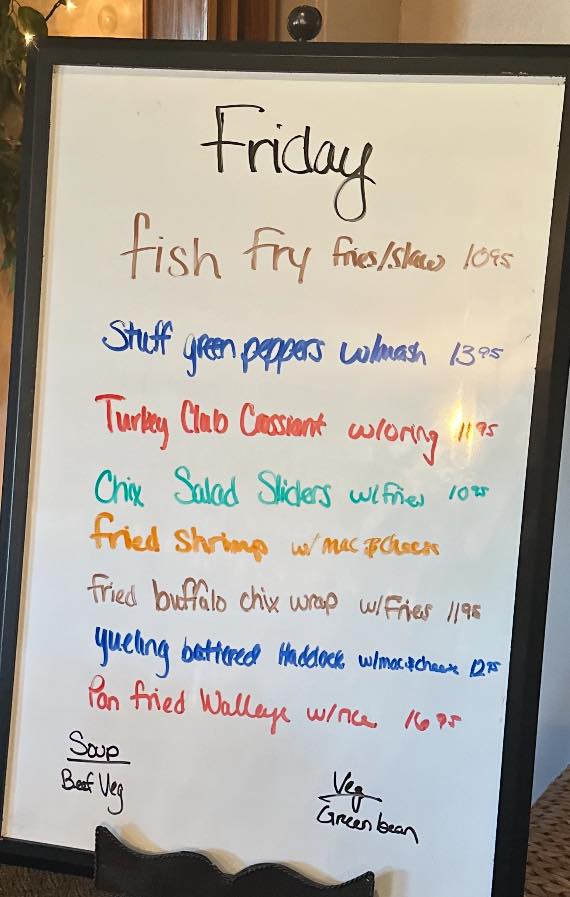 Friday
fish fry fries/slaw 10⁹⁵
Stuff green peppers w/mash 13⁹⁵
Turkey Club Crossiant w/oring 11⁹⁵
Chix Salad Sliders w/fries 10⁹⁵
fried shrimp w/ mac & cheese
fried buffalo chix wrap w/fries 11⁹⁵
yueling battered Haddock w/mac & cheese 12⁹⁵
Pan fried Walleye w/rice 16⁹⁵
Soup
Beef Veg
Veg
Green bean